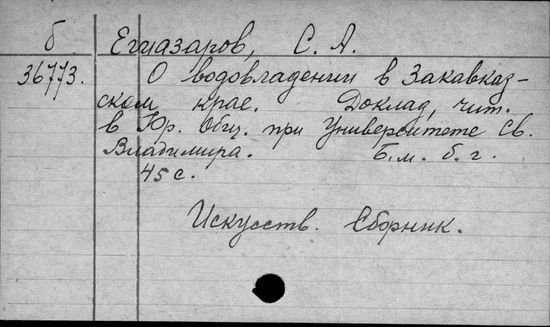 б. Егиазаров, С. А.
36773. О водовладении в Закавказ-
ском крае. Доклад, чит.
в Юр. Общ. при Университете Св.
Владимира. Б. м. б. г.
45 с.
Искусств. Сборник.